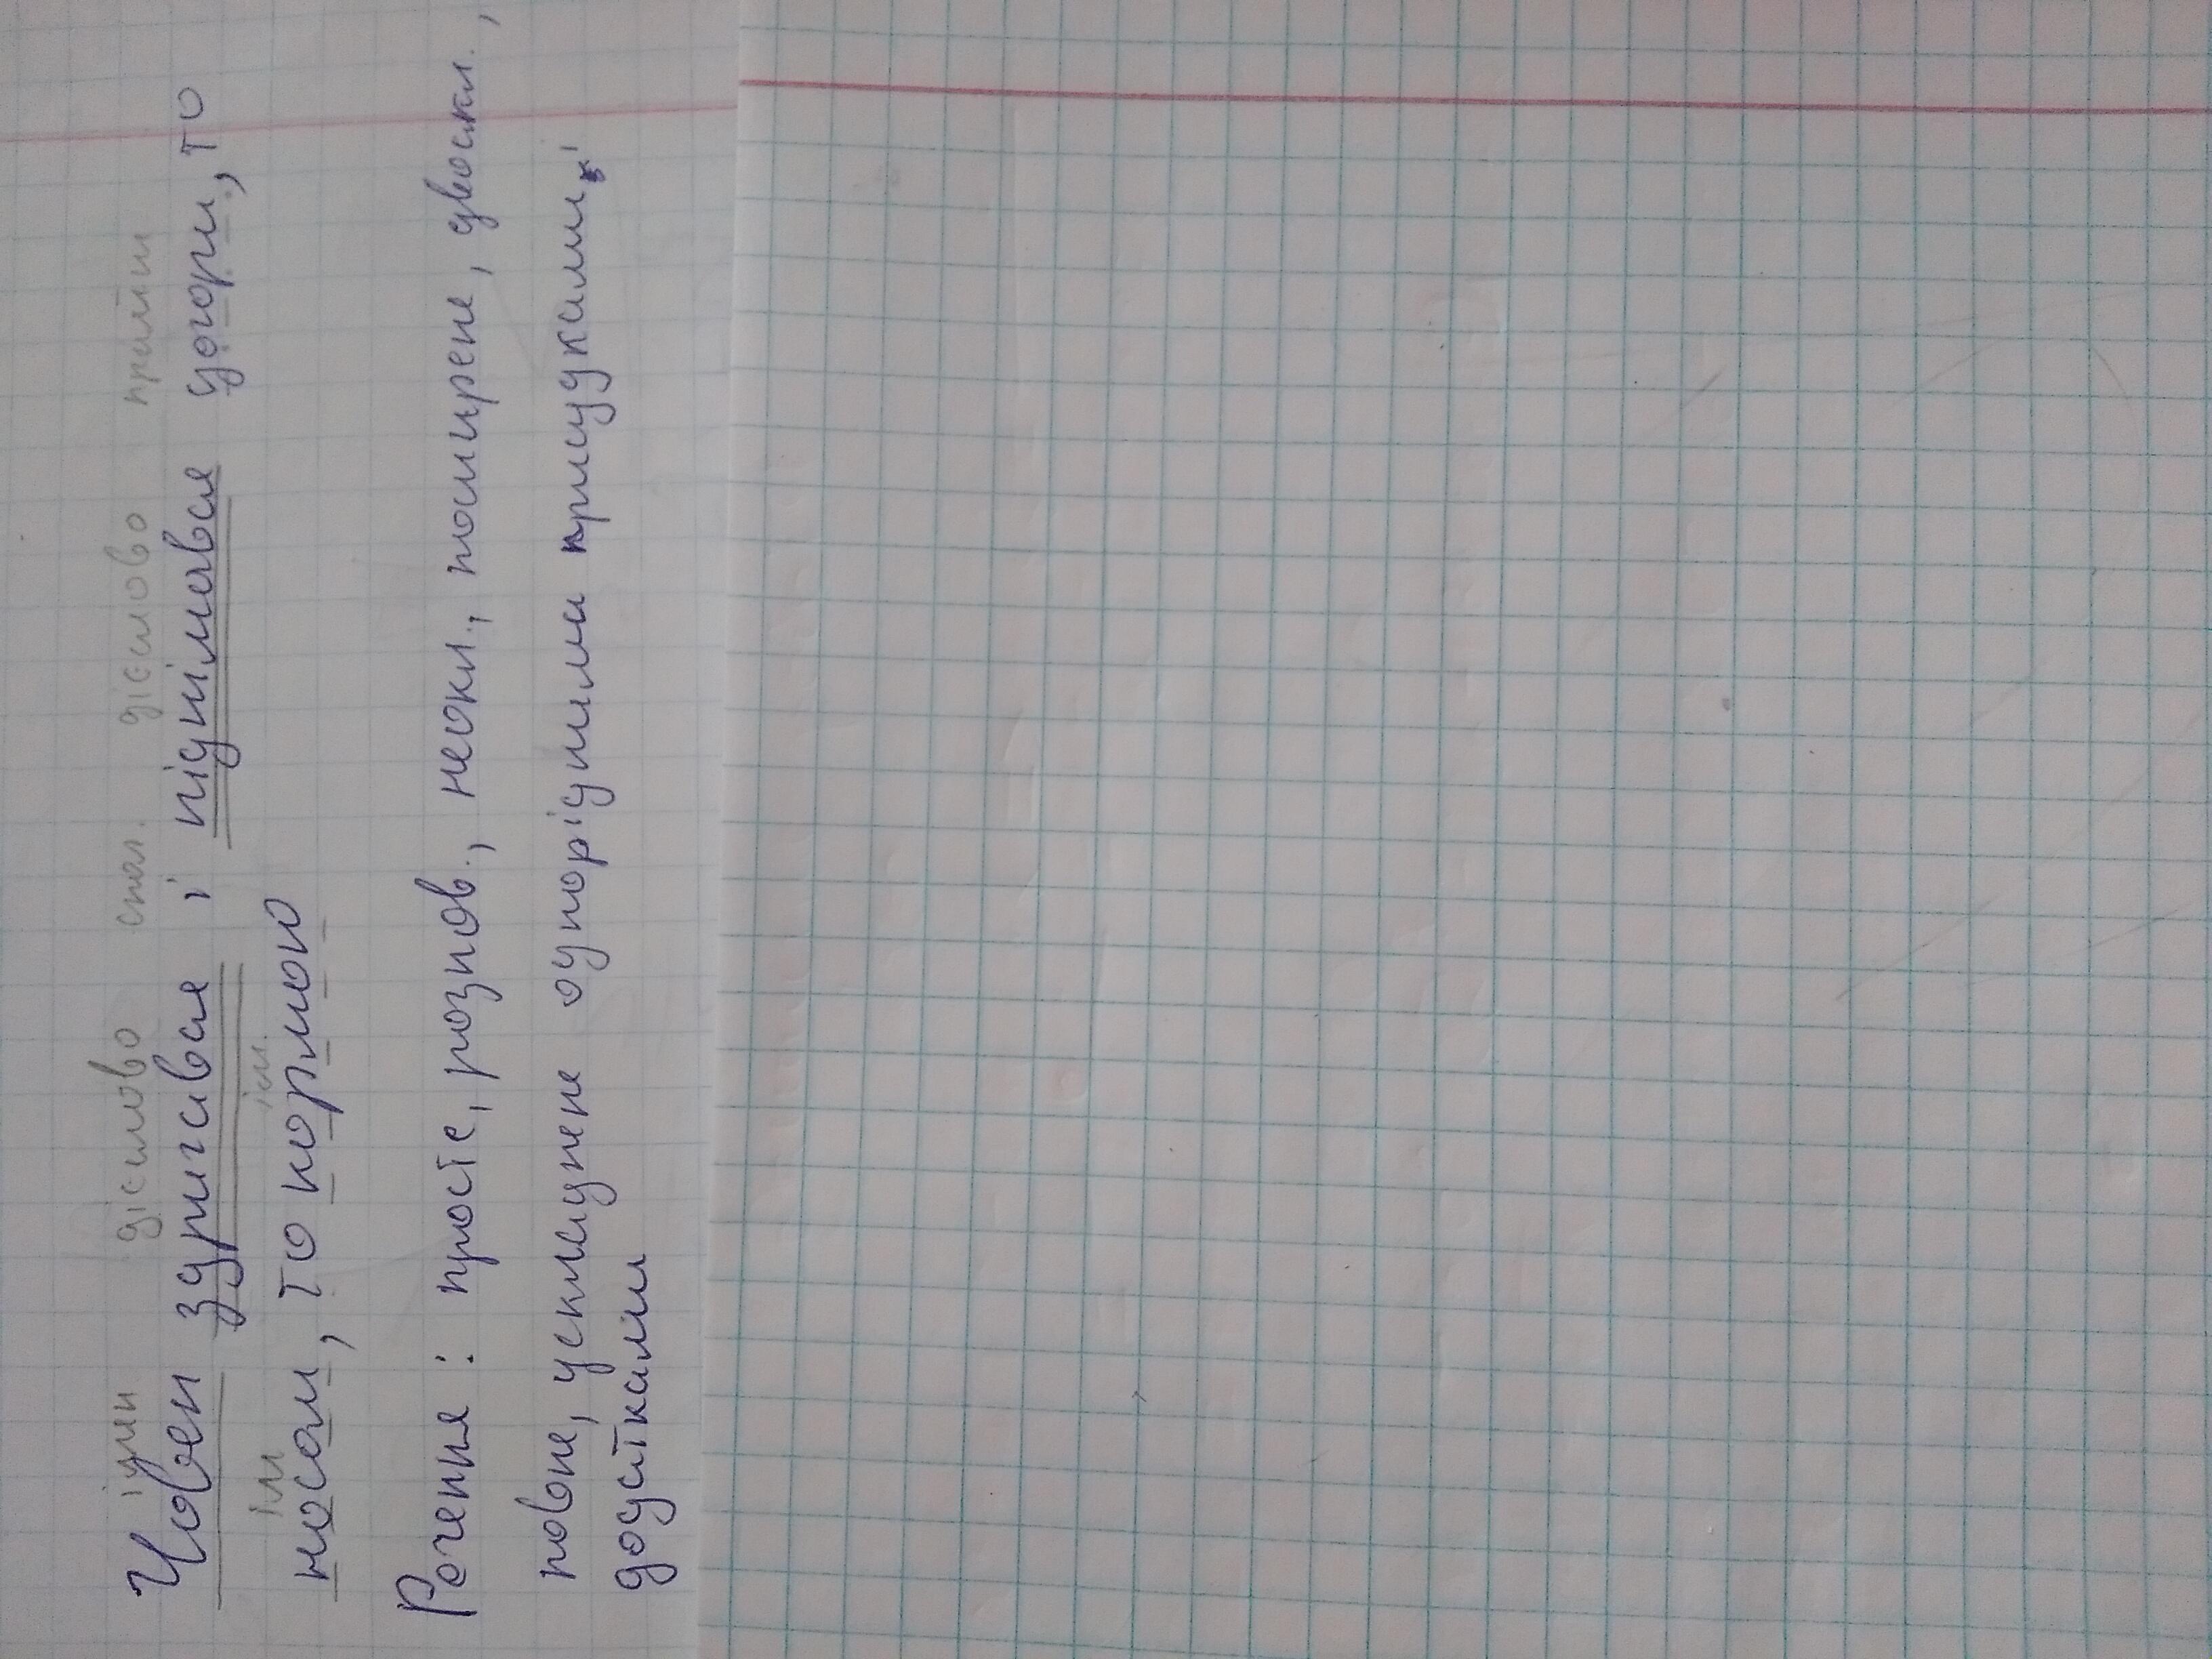 імен дієслово спол. дієслово прийм
Човен здригався і піднімався догори, то
ім ім.
носом, то кормою
Речення : просте, розпов., неокл., поширене, двоскл.,
повне, ускладнене однорідними присудками, і
додатками